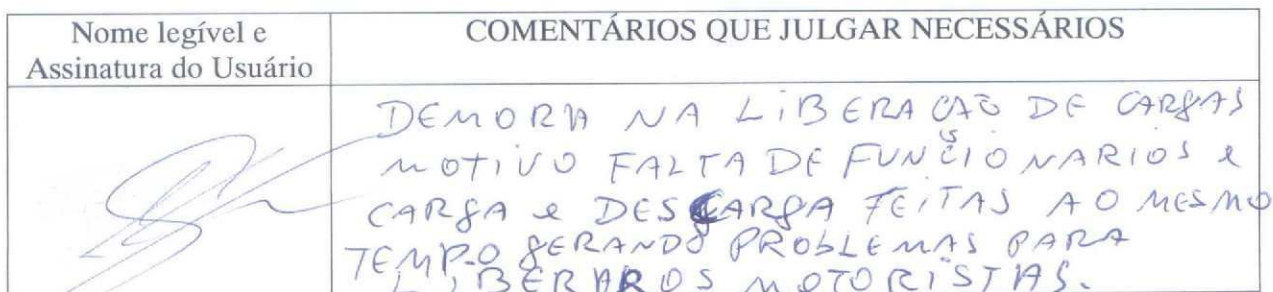 Nome legível e
Assinatura do Usuário
COMENTÁRIOS QUE JULGAR NECESSÁRIOS
DEMORA NA LIBERAÇÃO DE CARGAS
MOTIVO FALTA DE FUNCIONARIOS e
CARGA e DESCARGA FEITAS AO MESMO
TEMPO GERANDO PROBLEMAS PARA
LIBERAR OS MOTORISTAS.